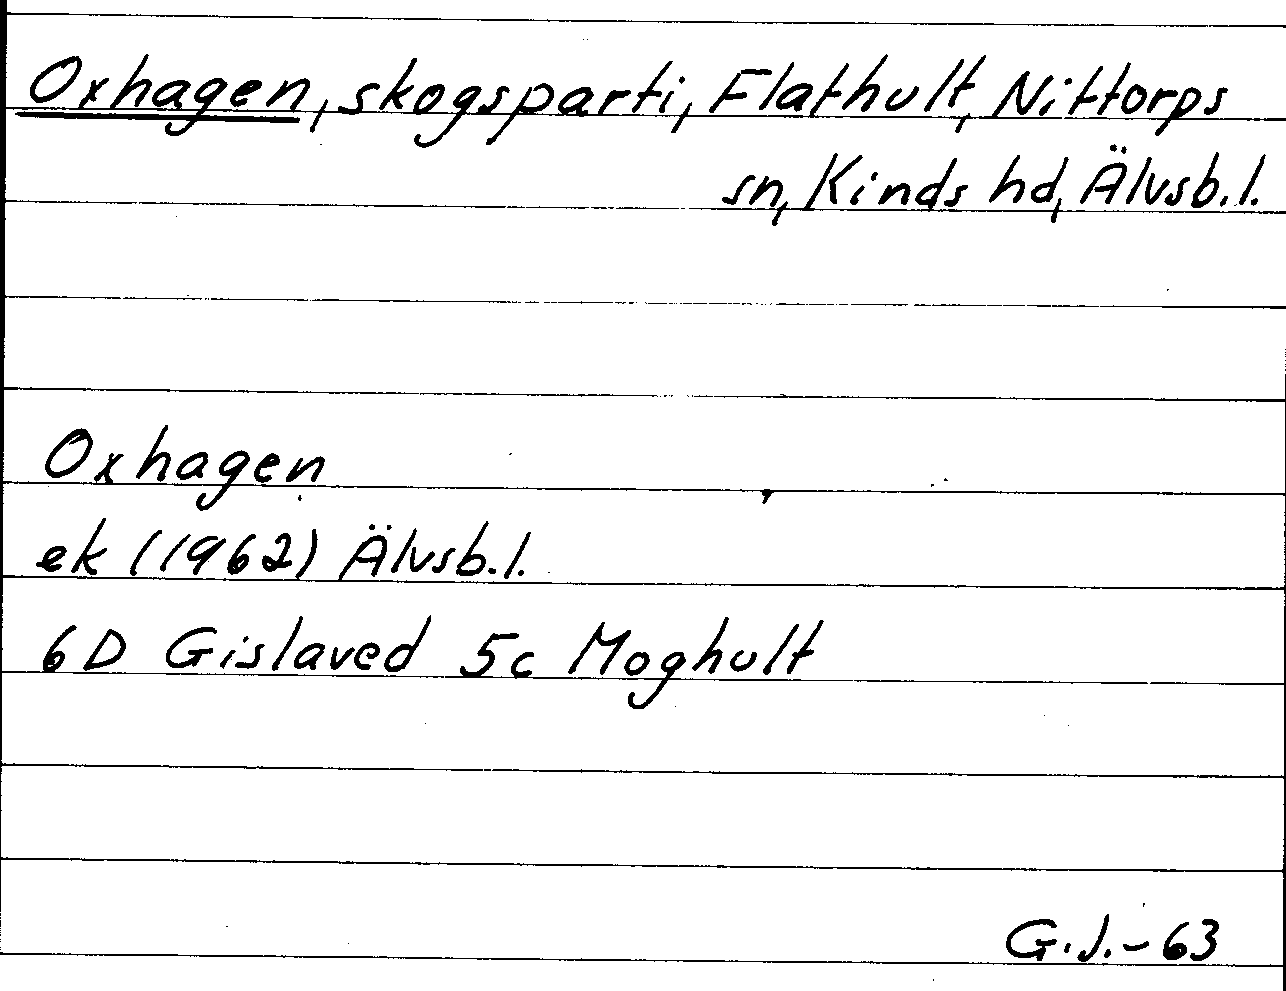 Oxhagen, skogsparti, Flathult, Nittorps
sn, Kinds hd, Älvsb.l.
Oxhagen
ek (1962) Älvsb.l.
6D Gislaved 5c Moghult
G.J.-63